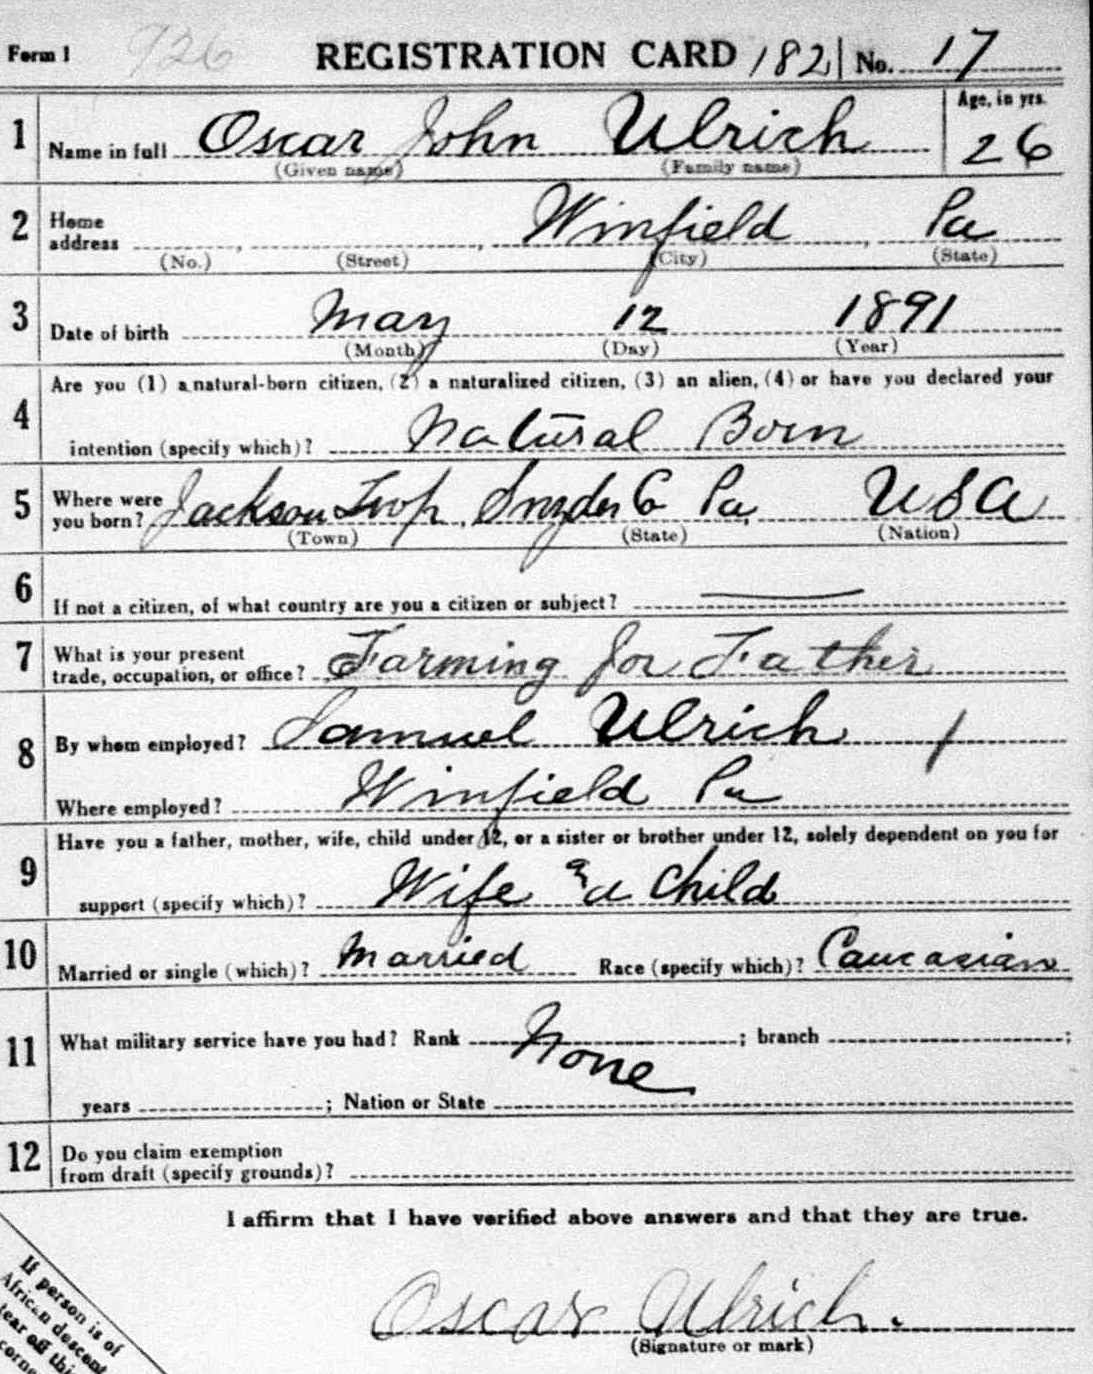 Form 1 926 REGISTRATION CARD 182 No. 17
1 Name in full Oscar John Ulrich Age, in yrs. 26
(Given name) (Family name)
2 Home address Winfield Pa
(No.) (Street) (City) (State)
3 Date of birth May 12 1891
(Month) (Day) (Year)
4 Are you (1) a natural-born citizen, (2) a naturalized citizen, (3) an alien, (4) or have you declared your
intention (specify which)? Natural Born
5 Where were you born? Jackson Twp, Snyder Co Pa USA
(Town) (State) (Nation)
6 If not a citizen, of what country are you a citizen or subject?
7 What is your present
trade, occupation, or office? Farming for Father
8 By whom employed? Samuel Ulrich
Where employed? Winfield Pa
9 Have you a father, mother, wife, child under 12, or a sister or brother under 12, solely dependent on you for
support (specify which)? Wife & a Child
10 Married or single (which)? Married Race (specify which)? Caucasian
11 What military service have you had? Rank None ; branch ;
years ; Nation or State
12 Do you claim exemption
from draft (specify grounds)?
I affirm that I have verified above answers and that they are true.
Oscar Ulrich.
(Signature or mark)
If person is of
African descent
tear off this
corner